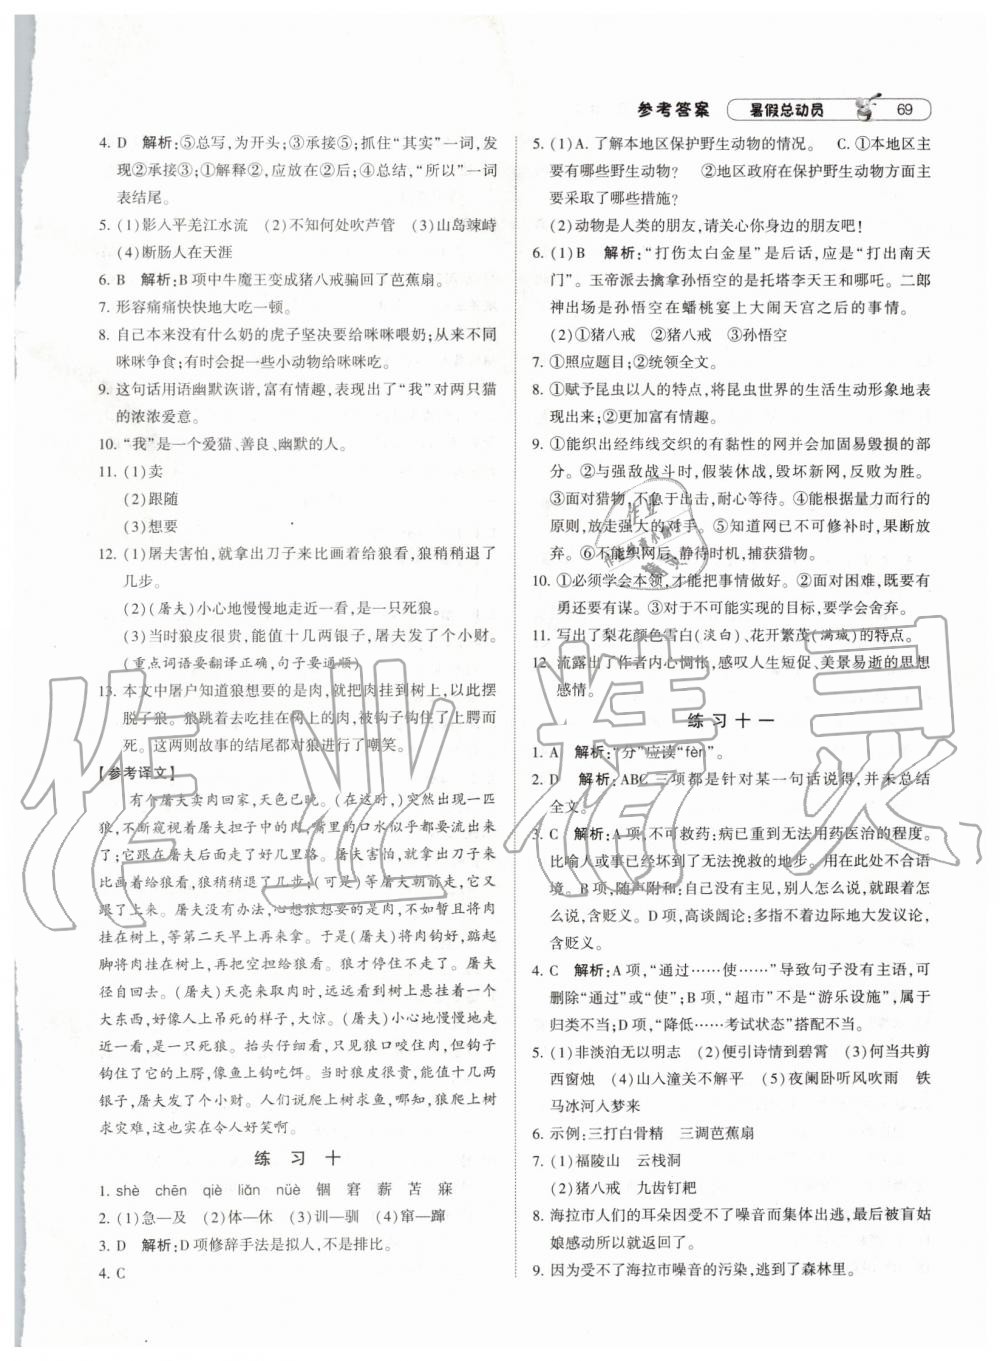 参考答案 暑假总动员 69
4. D 解析:⑤总写,为开头;③承接⑤;抓住“其实”一词,发
现②承接③;①解释②,应放在②后;④总结,“所以”一词
表结尾。
5. (1)影入平羌江水流 (2)不知何处吹芦管 (3)山岛竦峙
(4)断肠人在天涯
6. B 解析:B 项中牛魔王变成猪八戒骗回了芭蕉扇。
7. 形容痛痛快快地大吃一顿。
8. 自己本来没有什么奶的虎子坚决要给咪咪喂奶;从来不同
咪咪争食;有时会捉一些小动物给咪咪吃。
9. 这句话用语幽默诙谐,富有情趣,表现出了“我”对两只猫
的浓浓爱意。
10. “我”是一个爱猫、善良、幽默的人。
11. (1)卖
(2)跟随
(3)想要
12. (1)屠夫害怕,就拿出刀子来比画着给狼看,狼稍稍退了
几步。
(2)(屠夫)小心地慢慢地走近一看,是一只死狼。
(3)当时狼皮很贵,能值十几两银子,屠夫发了个小财。
(重点词语要翻译正确,句子要通顺)
13. 本文中屠户知道狼想要的是肉,就把肉挂到树上,以此摆
脱了狼。狼跳着去吃挂在树上的肉,被钩子钩住了上腭而
死。这两则故事的结尾都对狼进行了嘲笑。
【参考译文】
有个屠夫卖肉回家,天色已晚。(在这时)突然出现一匹
狼,不断窥视着屠夫担子中的肉,嘴里的口水似乎都要流出来
了;它跟在屠夫后面走了好几里路。屠夫害怕,就拿出刀子来
比画着给狼看,狼稍稍退了几步;(可是)等屠夫朝前走,狼又
跟了上来。屠夫没有办法,心想狼想要的是肉,不如暂且将肉
挂在树上,等第二天早上再来拿。于是(屠夫)将肉钩好,踮起
脚将肉挂在树上,再把空担子给狼看。狼才停止跟着他。屠夫
就回家了。(屠夫)天亮来取肉时,远远看见树上挂着一个
大东西,好像人上吊死的样子,大惊。(屠夫)小心地慢慢地走
近一看,是一只死狼。抬起头来仔细看,狼口咬住肉,但钩子
钩住了它的上腭,像鱼上钩吃饵。当时狼皮很贵,能值十几两
银子,屠夫发了个小财。人们说爬上树求鱼,哪知,狼爬上树
求灾难,这实在令人好笑啊。
练习十
1. shè chēn qiè liǎn nüè 锢 窘 薪 苫 寐
2. (1)急—及 (2)体—休 (3)训—驯 (4)窜—蹿
3. D 解析:D 项修辞手法是拟人,不是排比。
4. C
5. (1)A. 了解本地区保护野生动物的情况。 C. ①本地区主
要有哪些野生动物? ②地区政府在保护野生动物方面主
要采取了哪些措施?
(2)动物是人类的朋友,请关心你身边的动物吧!
6. (1)B 解析:“打伤太白金星”是后话,应是“打出南天
门”。玉帝派去擒拿孙悟空的是托塔李天王和哪吒。二郎
神出场是孙悟空在蟠桃宴上大闹天宫之后的事情。
(2)①猪八戒 ②猪八戒 ③孙悟空
7. ①照应题目;②统领全文。
8. ①赋予昆虫以人的特点,将昆虫世界的生活生动形象地表
现出来;②更加富有情趣。
9. ①能织出经纬线交织的有黏性的网并会加固易毁损的部
分。②与强敌战斗时,假装休战,毁坏新网,反败为胜。
③面对猎物,不急于出击,耐心等待。④根据量力而行的
原则,放走强大的对手。⑤知道网已不可修补时,果断放
弃。⑥不能织网后,静待时机,捕获猎物。
10. ①必须学会本领,才能把事情做好。②面对困难,既要有
勇还要有谋。③对于不可能实现的目标,要学会舍弃。
11. 写出了梨花颜色雪白(淡白)、花开繁茂(满城)的特点。
12. 流露出了作者内心惆怅,感叹人生短促、美景易逝的思想
感情。
练习十一
1. A 解析:“分”应读“fèn”。
2. D 解析:ABC 三项都是针对某一句话说得,并未总结
全文。
3. C 解析:A 项,不可救药:病已重到无法用药医治的程度。
比喻人或事物已经坏到了无法挽救的地步。用在此处不合
语境。B 项,随声附和:自己没有主见,别人怎么说,就跟着怎
么说,含贬义。D 项,高谈阔论:多指不着边际地大发议论,
含贬义。
4. C 解析:A 项,“通过……使……”导致句子没有主语,可
删除“通过”或“使”;B 项,“超市”不是“游乐设施”,属于
归类不当;D 项,“降低……考试状态”搭配不当。
5. (1)非淡泊无以明志 (2)便引诗情到碧霄 (3)何当共剪
西窗烛 (4)山入潼关不解平 (5)夜阑卧听风吹雨 铁
马冰河入梦来
6. 示例:三打白骨精 三调芭蕉扇
7. (1)福陵山 云栈洞
(2)猪八戒 九齿钉耙
8. 海拉市人们的耳朵因受不了噪音而集体出逃,最后被盲姑
娘感动所以就返回了。
9. 因为受不了海拉市噪音的污染,逃到了森林里。
作业精灵